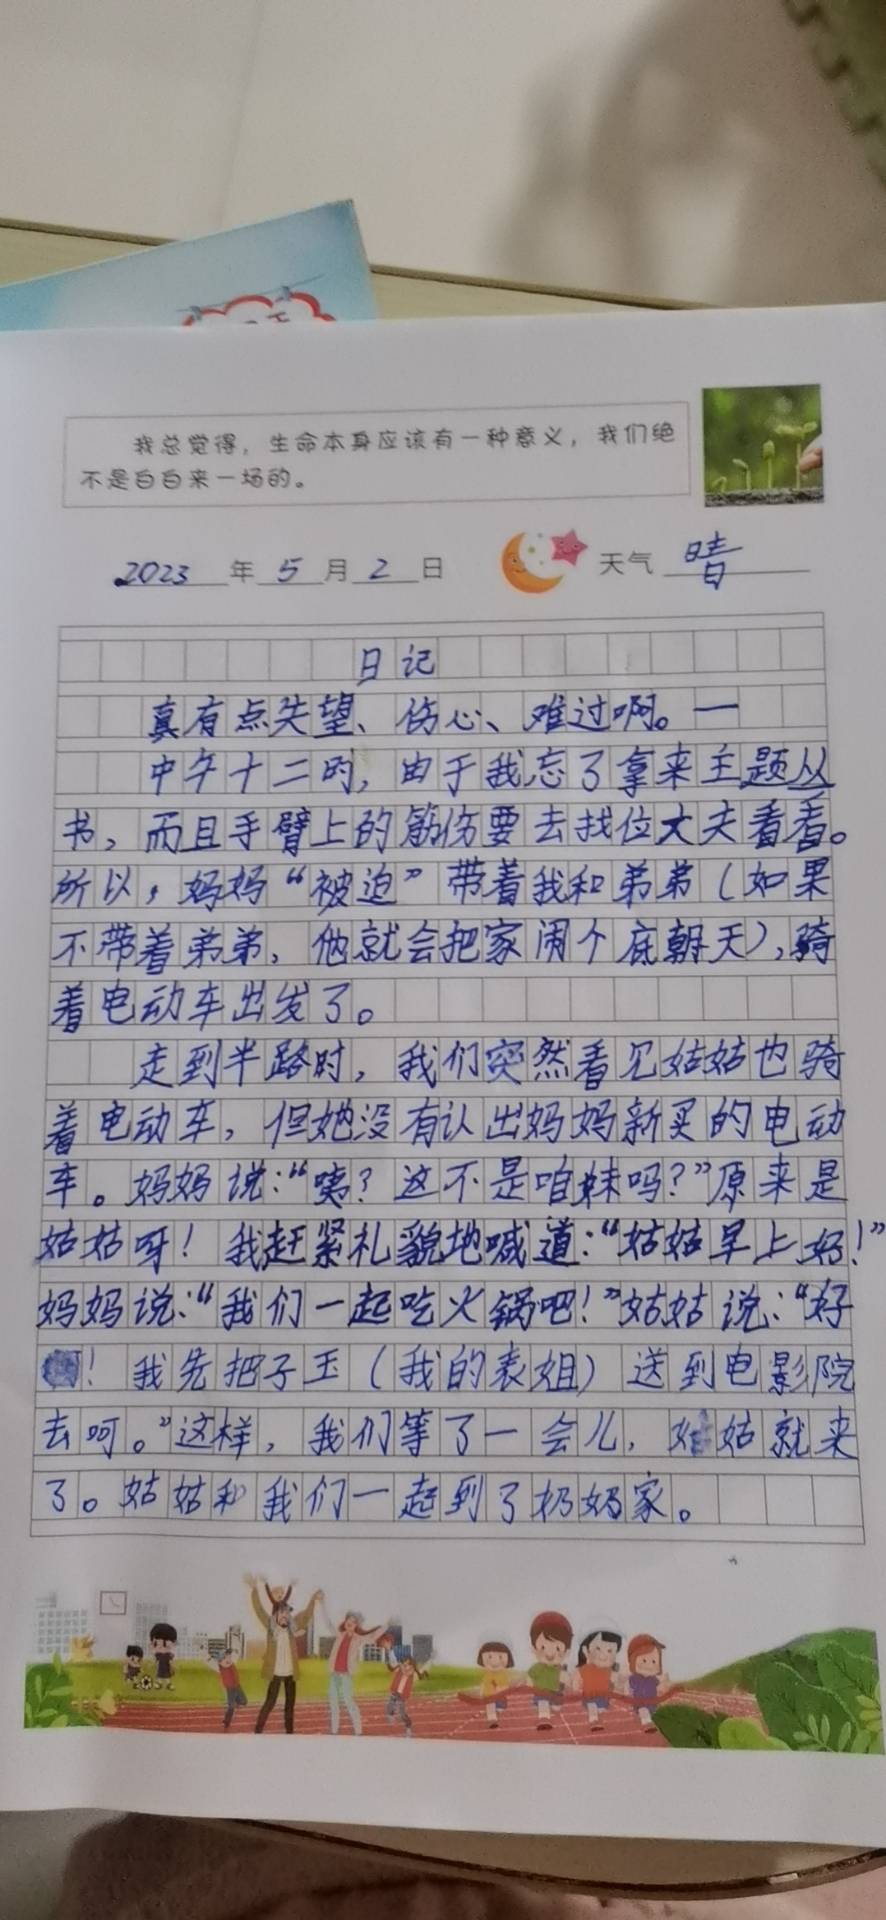 我总觉得，生命本身应该有一种意义，我们绝
不是白白来一场的。
2023年5月2日 天气 晴
日记
真有点失望、伤心、难过啊。一
中午十二时，由于我忘了拿来主题丛
书，而且手臂上的筋伤要去找位大夫看看。
所以，妈妈“被迫”带着我和弟弟（如果
不带着弟弟，他就会把家闹个底朝天），骑
着电动车出发了。
走到半路时，我们突然看见姑姑也骑
着电动车，但她没有认出妈妈新买的电动
车。妈妈说：“咦？这不是咱妹吗？”原来是
姑姑呀！我赶紧礼貌地喊道：“姑姑早上好！”
妈妈说：“我们一起吃火锅吧！”姑姑说：“好
！我先把子玉（我的表姐）送到电影院
去呵。”这样，我们等了一会儿，姑姑就来
了。姑姑和我们一起到了奶奶家。